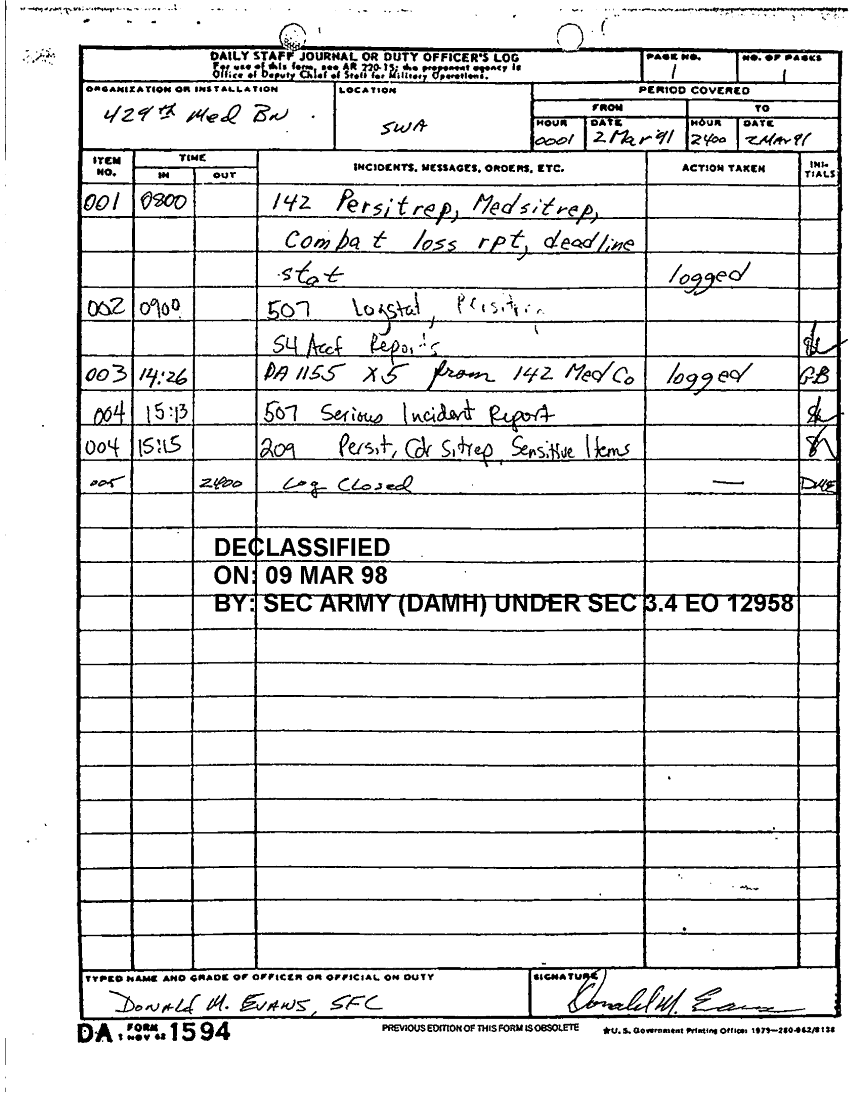 DAILY STAFF JOURNAL OR DUTY OFFICER'S LOG
For use of this form, see AR 220-15; the proponent agency is
Office of Deputy Chief of Staff for Military Operations.
PAGE NO.
1
NO. OF PAGES
1
ORGANIZATION OR INSTALLATION
429th Med BN
LOCATION
SWA
PERIOD COVERED
FROM TO
HOUR DATE HOUR DATE
0001 2 Mar 91 2400 2 MAR 91
ITEM NO. TIME IN OUT INCIDENTS, MESSAGES, ORDERS, ETC. ACTION TAKEN INI-TIALS
001 0800 142 Persitrep, Medsitrep,
Combat loss rpt, deadline
stat logged
002 0900 507 Logstat,
S4 Reports
003 14:26 DA 1155 X5 from 142 Med Co logged GB
004 15:13 507 Serious Incident Report
004 15:15 209 Persit, Cdr Sitrep, Sensitive Items
005 2400 Log Closed — DME
DECLASSIFIED
ON: 09 MAR 98
BY: SEC ARMY (DAMH) UNDER SEC 3.4 EO 12958
TYPED NAME AND GRADE OF OFFICER OR OFFICIAL ON DUTY
DONALD M. EVANS, SFC
SIGNATURE
Donald M. Evans
DA FORM 1 NOV 62 1594
PREVIOUS EDITION OF THIS FORM IS OBSOLETE
☆U.S. Government Printing Office: 1979—280-962/8138